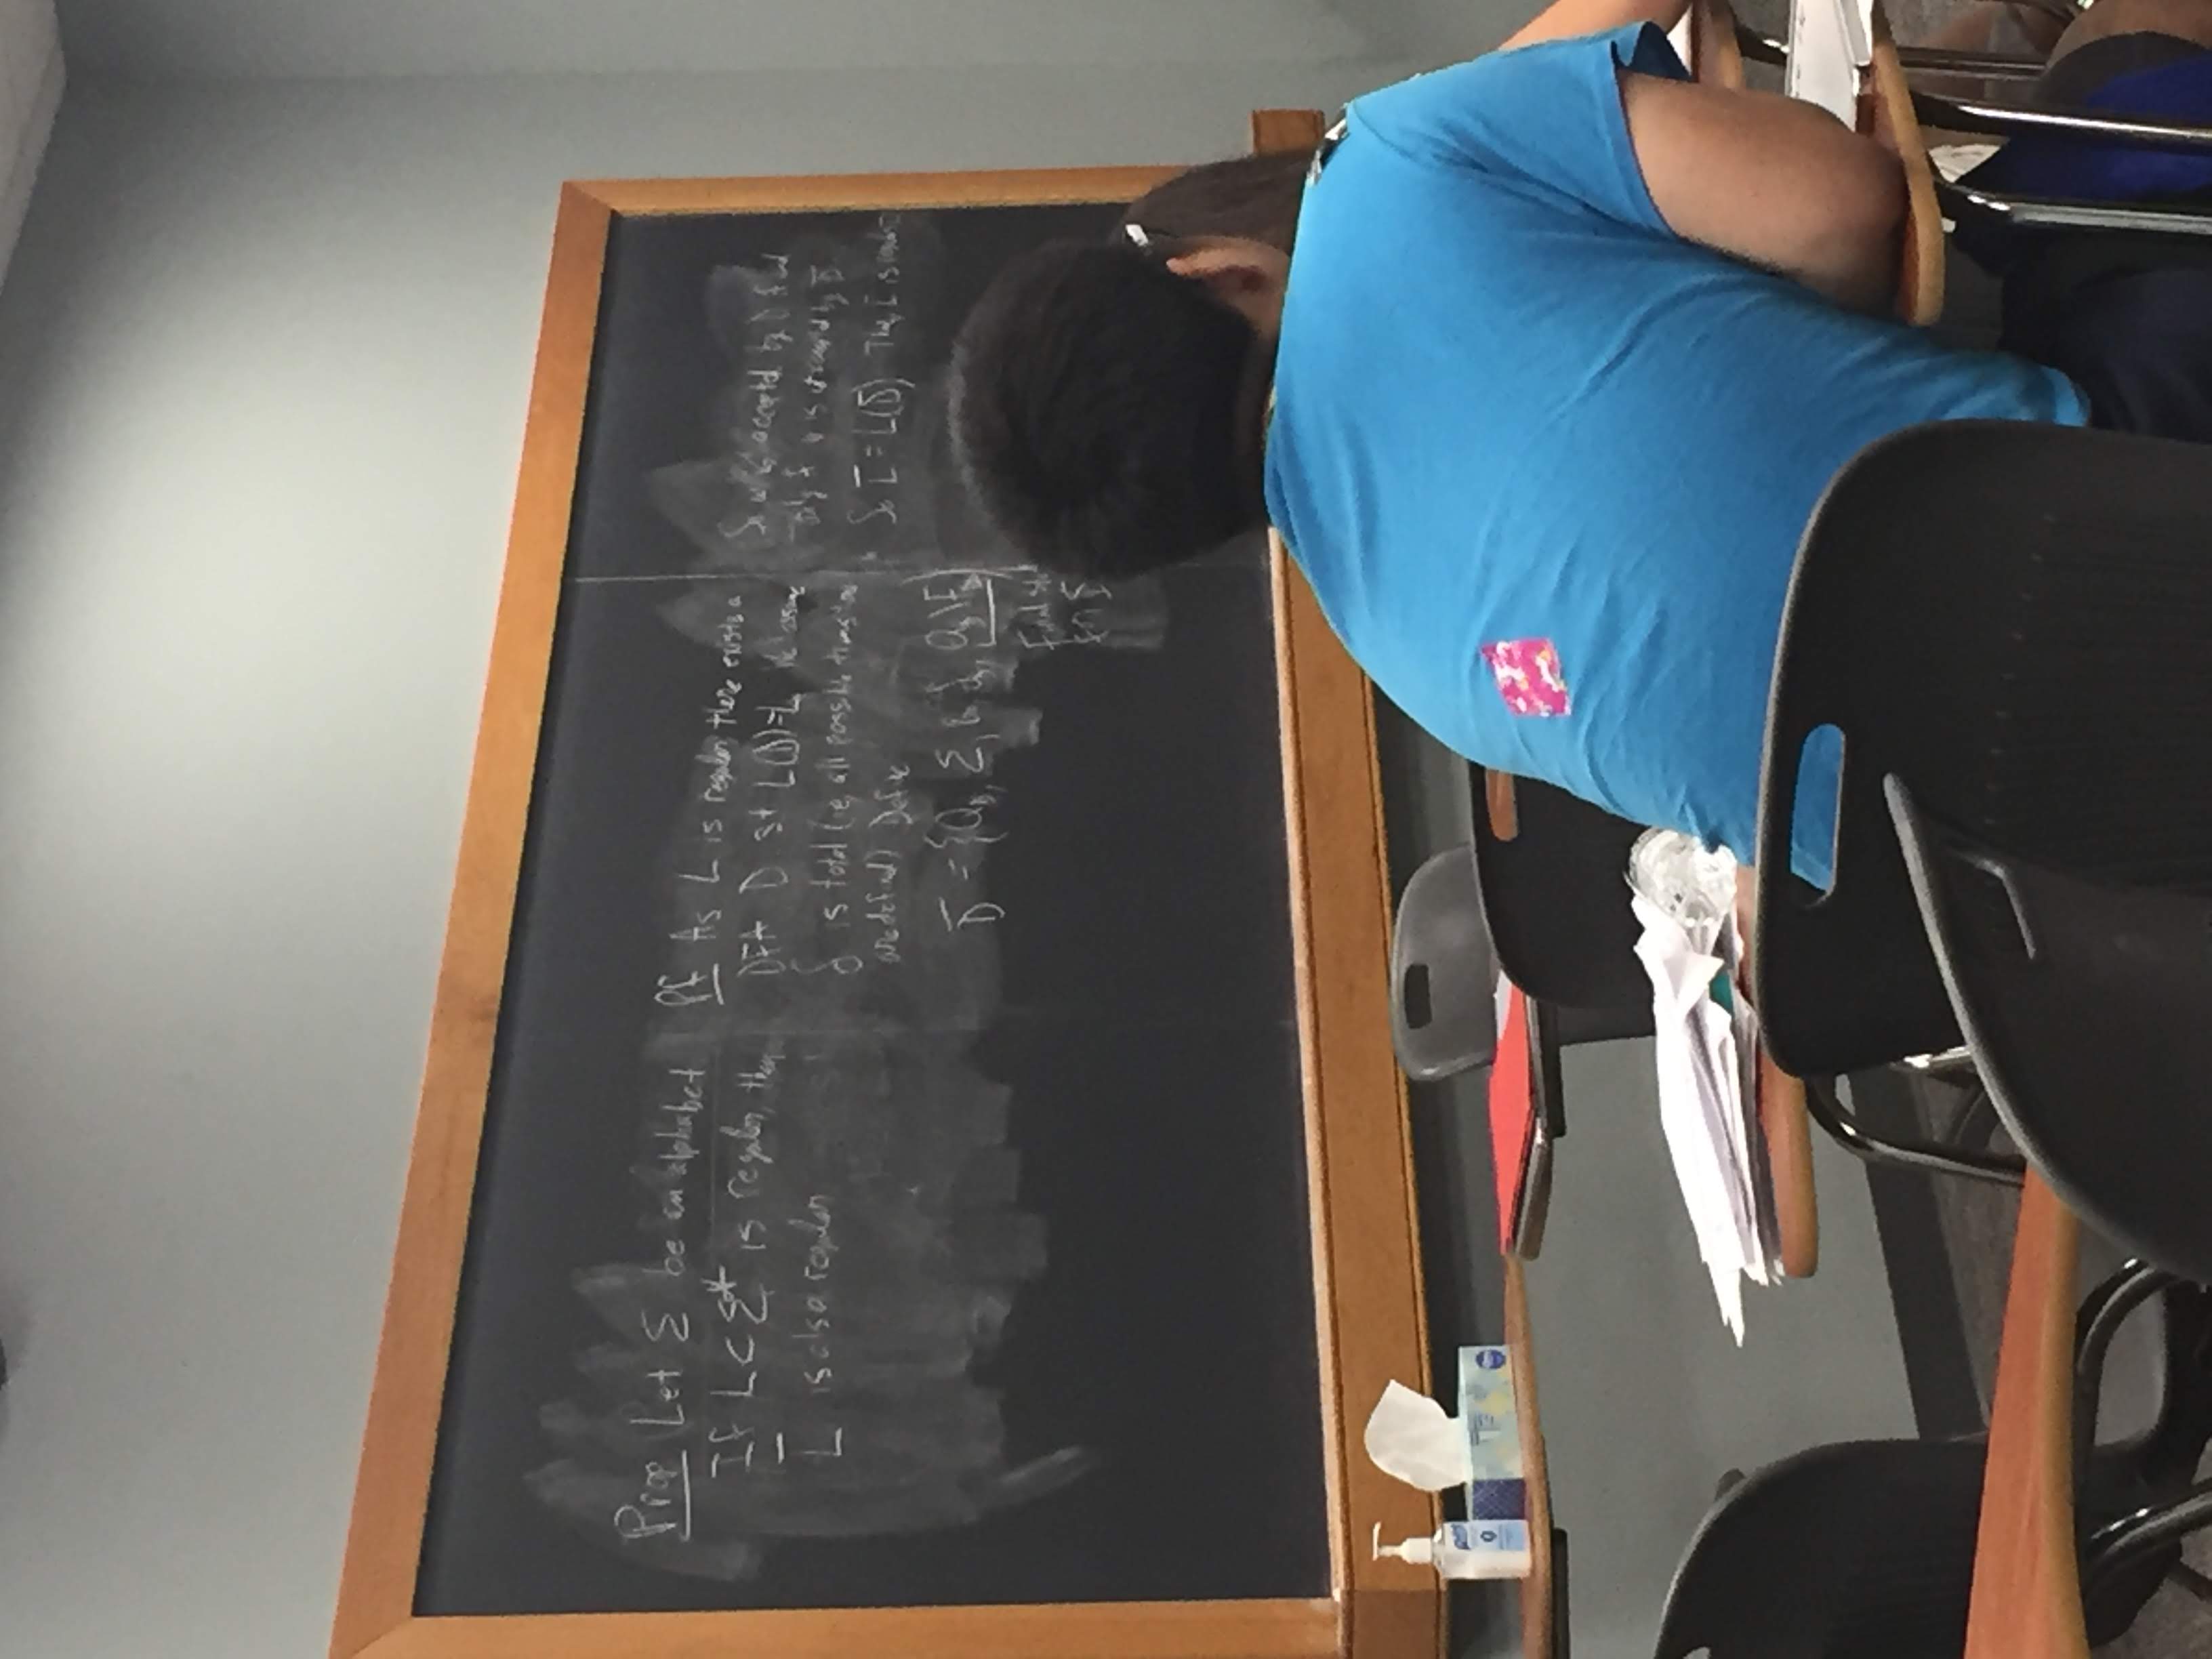 Prop Let Σ be an alphabet
If L ⊂ Σ* is regular, then
L̅ is also regular
Pf As L is regular there exists a
DFA D st L(D)=L. We assume
δ is total (ie, all possible transitions
are defined) Define
D̅ = {Q_D, Σ, δ_D, Q_D\F_D)
Final
for D̅
So w is accepted by D if and
only if w is by D̅.
So L̅ = L(D̅) Thus, L̅ is regular